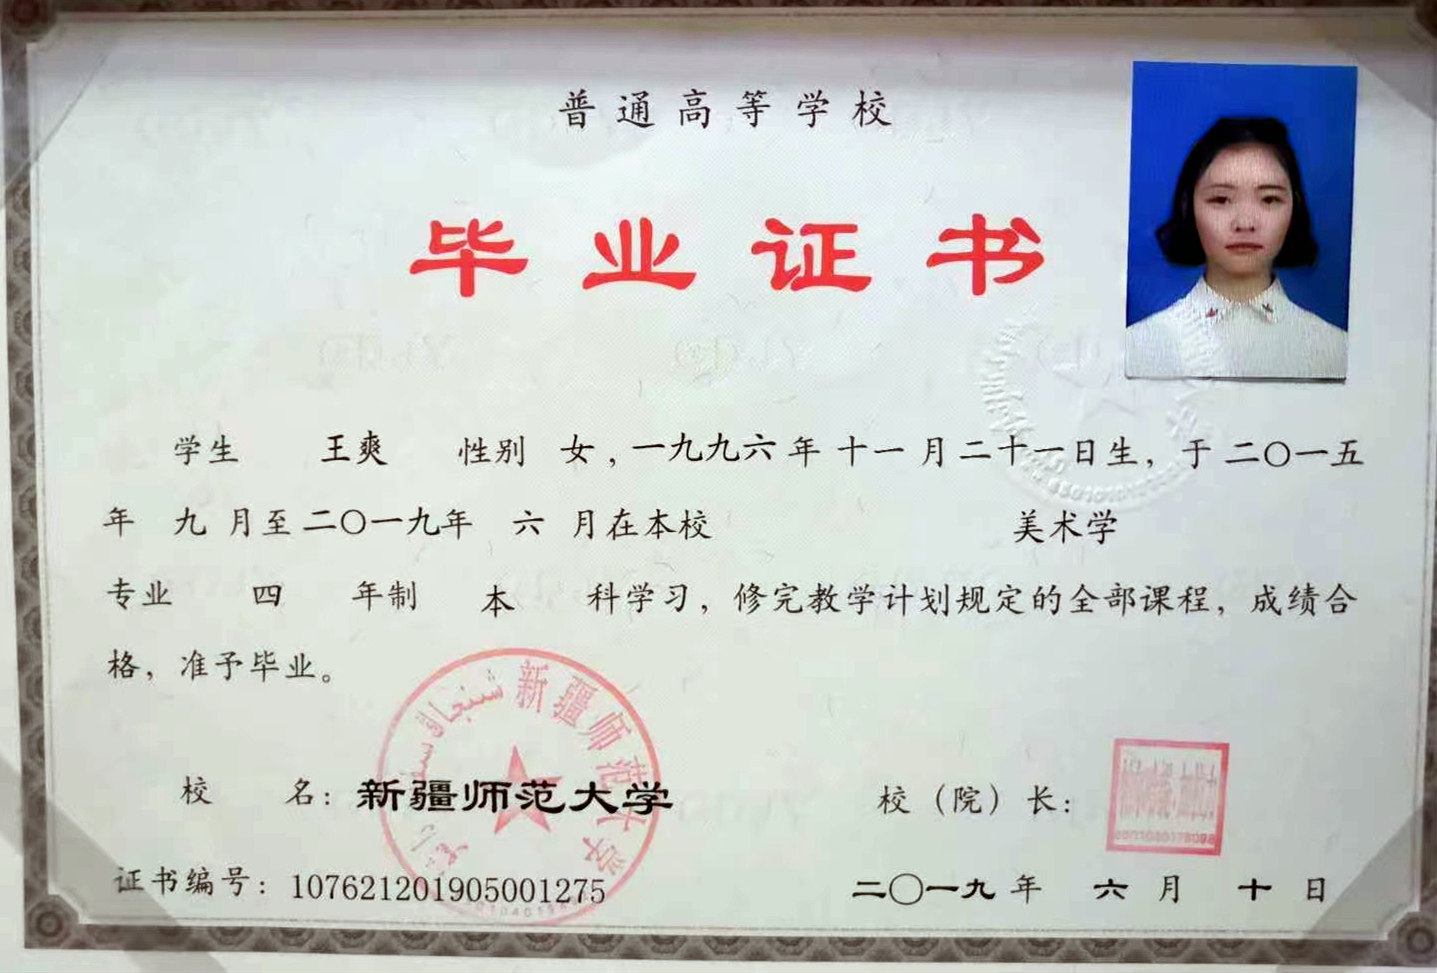 普通高等学校
毕业证书
学生 王爽 性别 女，一九九六年 十一月二十一日生，于二〇一五
年 九 月至二〇一九年 六 月在本校 美术学
专业 四 年制 本 科学习，修完教学计划规定的全部课程，成绩合
格，准予毕业。
新疆师范大学
校 名：新疆师范大学 校（院）长：
证书编号：107621201905001275 二〇一九 年 六 月 十 日